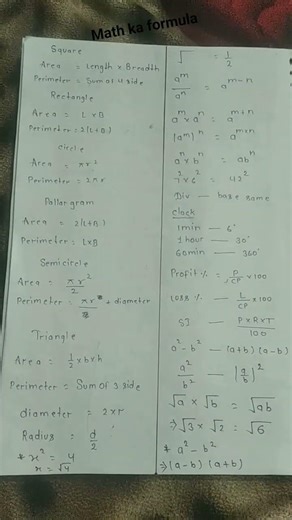 Math ka formula
Square
Area = Length x Breadth
Perimeter = Sum of 4 side
Rectangle
Area = L x B
Perimeter = 2(L+B)
Circle
Area = πr²
Perimeter = 2πr
Pallangram
Area = 2(L+B)
Perimeter = L x B
Semicircle
Area = πr²/2
Perimeter = πr + diameter
Triangle
Area = 1/2 x b x h
Perimeter = Sum of 3 side
diameter = 2 x r
Radius = d/2
* x² = 4
x = √4
√ = 1/2
a^m/a^n = a^m-n
a^m x a^n = a^m+n
(a^m)^n = a^m+n
a^n x b^n = ab^n
7² x 6² = 42²
Div — base same
Clock
1 min — 6°
1 hour — 30°
60 min — 360°
Profit % = P/CP x 100
Loss % — L/CP x 100
SI — P x R x T/100
a² - b² — (a+b) (a-b)
a²/b² — |a/b|²
√a x √b = √ab
⇒ √3 x √2 = √6
* a² - b²
⇒ (a-b) (a+b)